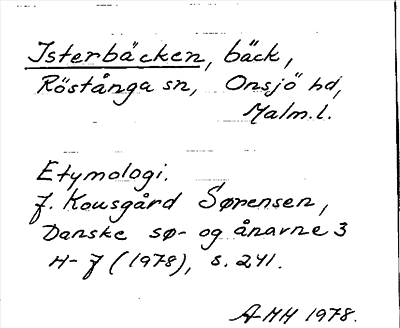 Isterbäcken, bäck,
Röstånga sn, Onsjö hd,
Malm.l.
Etymologi.
J. Kousgård Sørensen,
Danske sø- og ånavne 3
H-J (1978), s. 241.
AMH 1978.